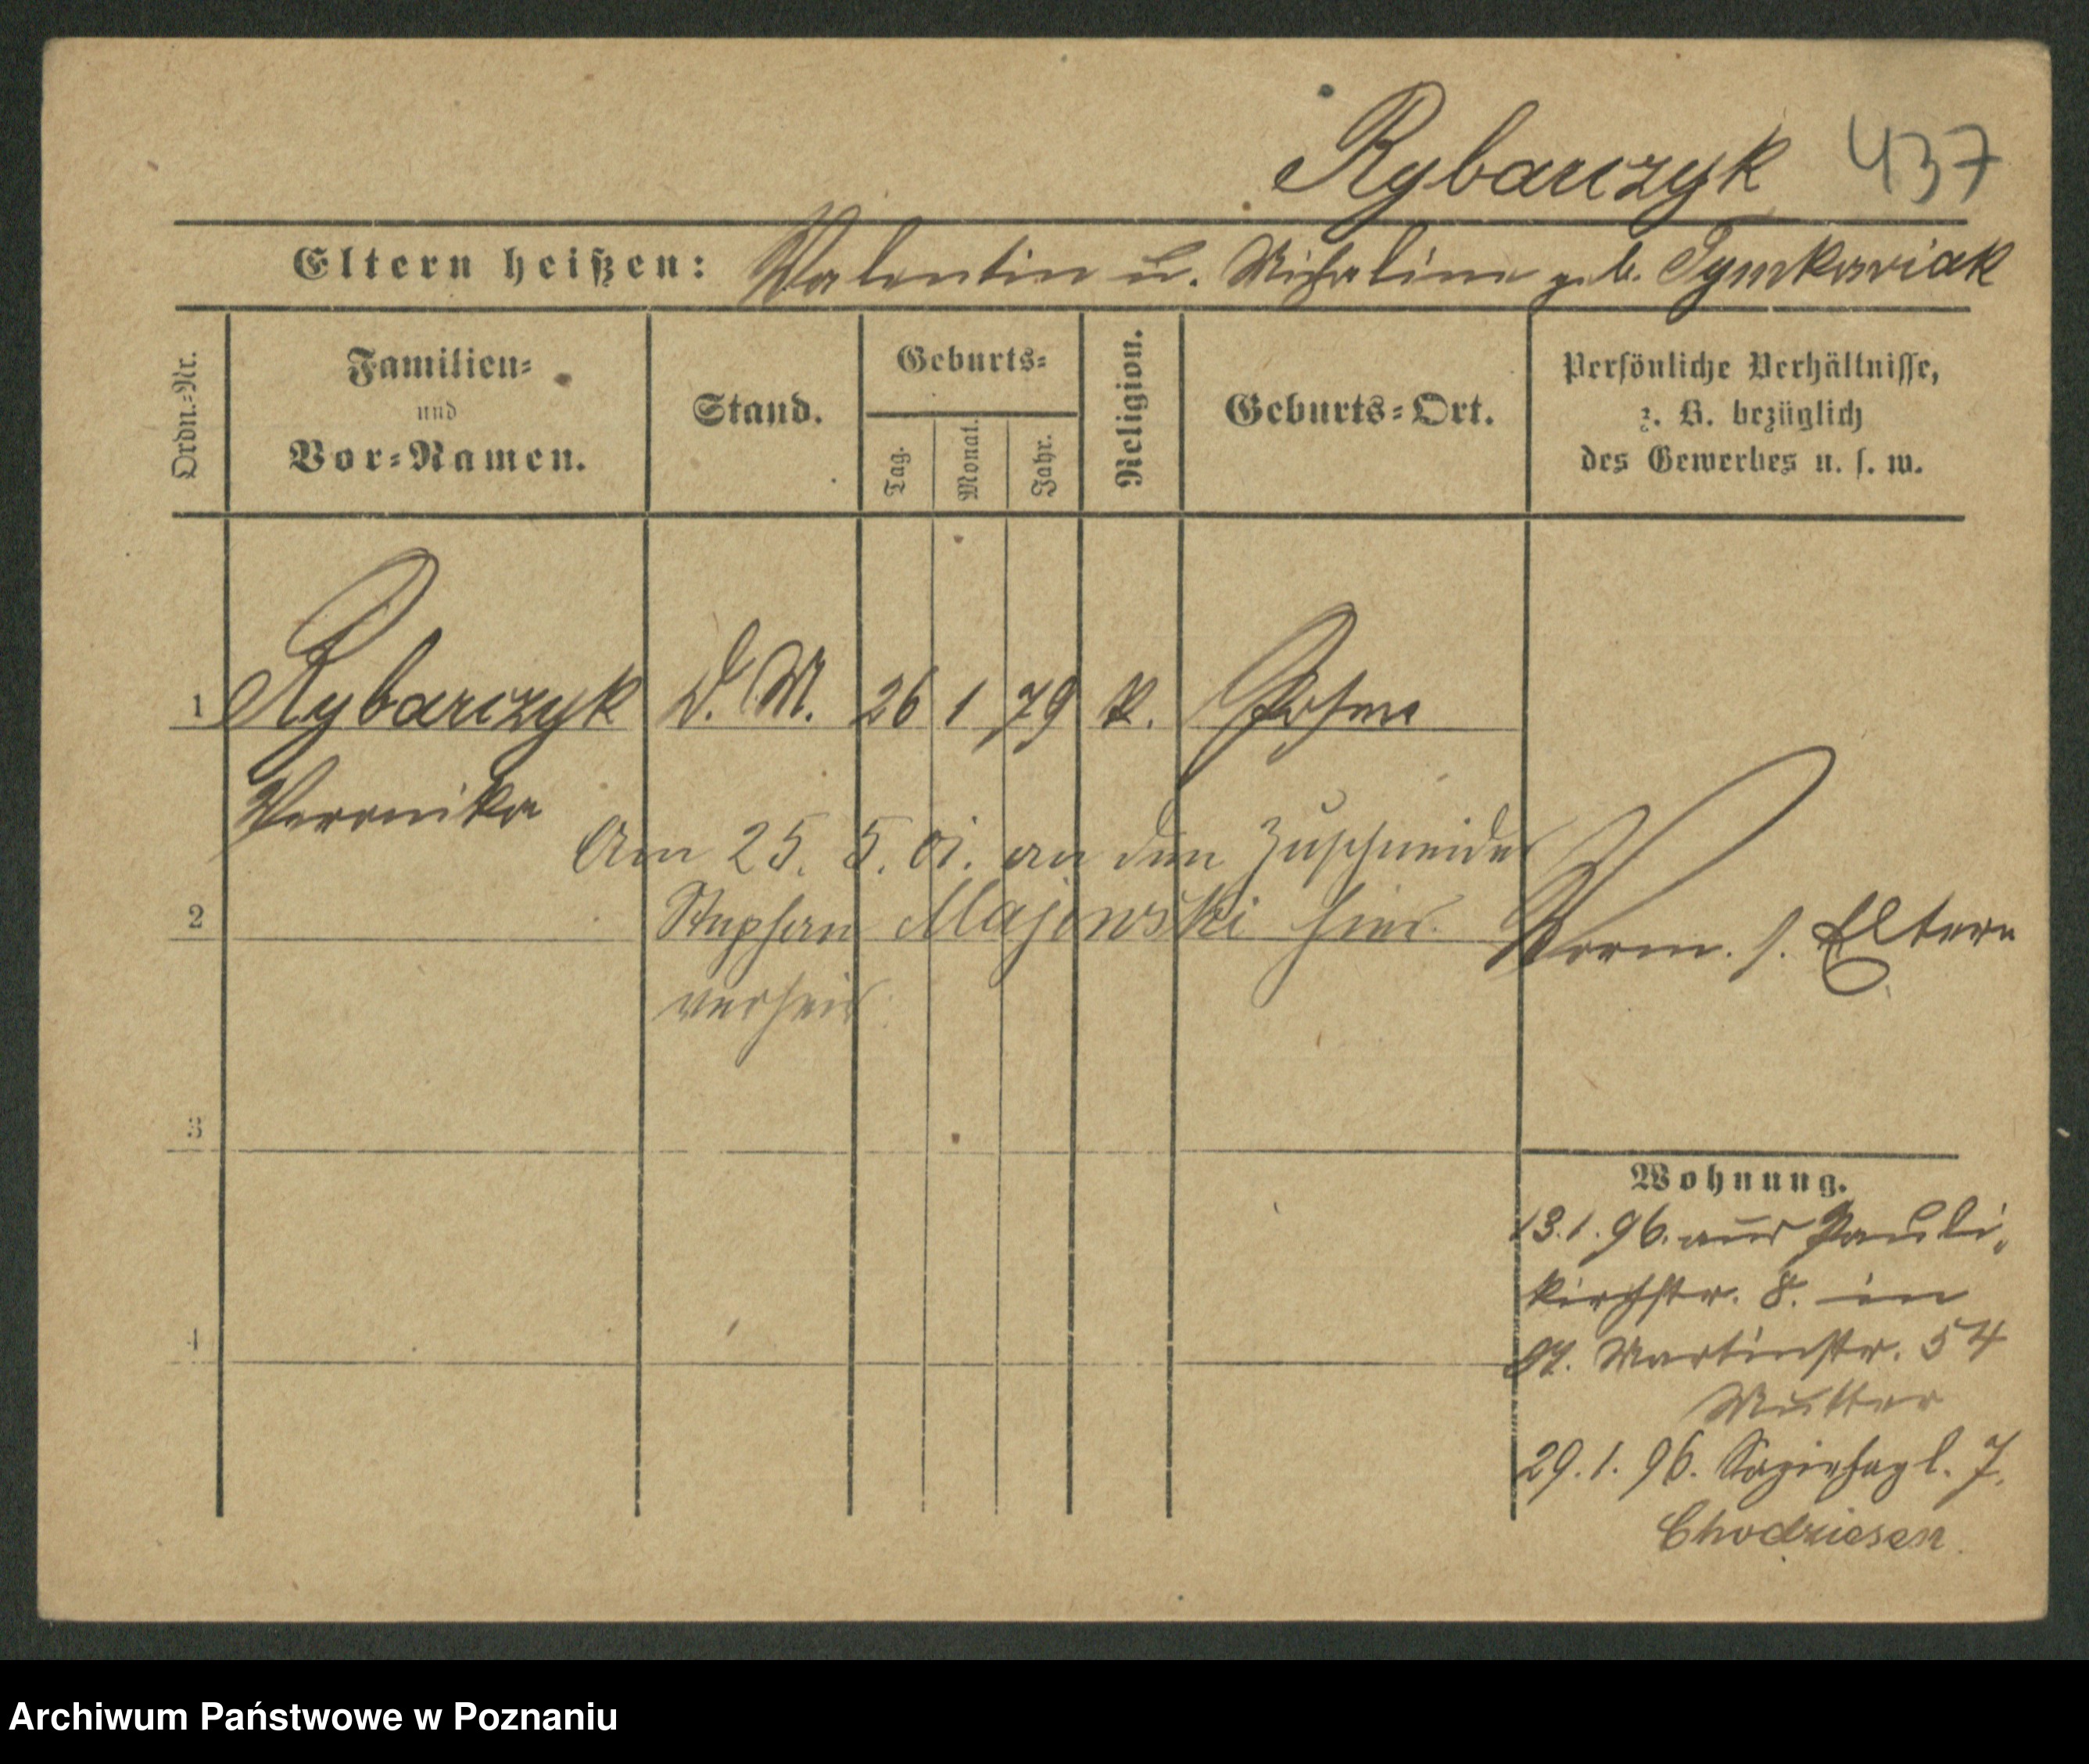 Rybarczyk 437
Eltern heißen: Valentin u. Michaline geb. Tymkowiak
Ordn.-Nr.
Familien-
und
Vor-Namen.
Stand.
Geburts-
Tag.
Monat.
Jahr.
Religion.
Geburts-Ort.
Persönliche Verhältnisse,
z. B. bezüglich
des Gewerbes u. s. w.
1 Rybarczyk D. M. 26 1 79 k. Posen
Veronika
Am 25. 5. 01. an den Zuschneider
2 Stephan Majewski hier
verheir.
Vorm. s. Eltern
3
Wohnung.
13.1.96. aus Pauli-
kirchstr. 8. in
St. Martinstr. 54
4
Mutter
29.1.96. l. J.
Chodziesen.